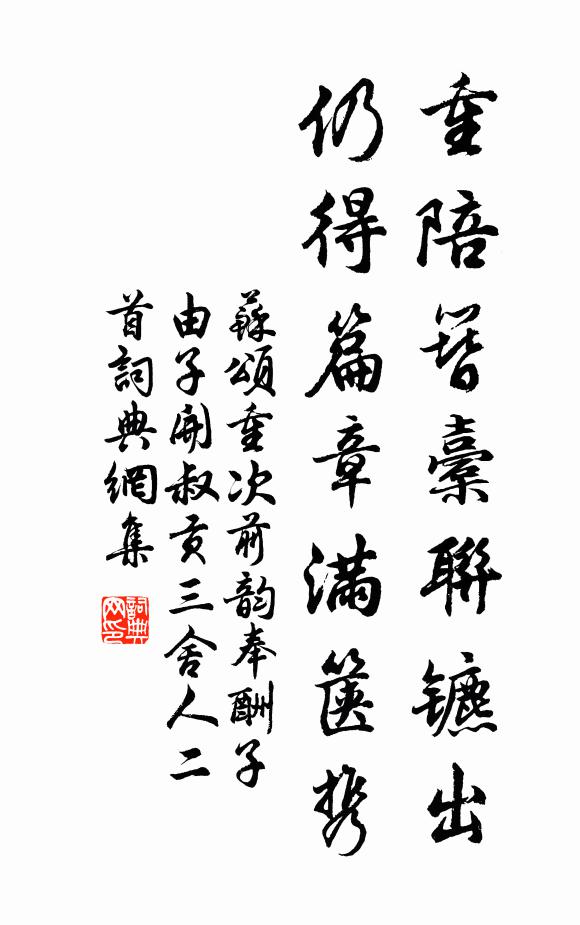 重陪簪橐聯鑣出
仍得篇章滿篋携
蘇頌重次前韵奉酬子
由子開叔貢三舍人二
首詞典網集
詞典網印